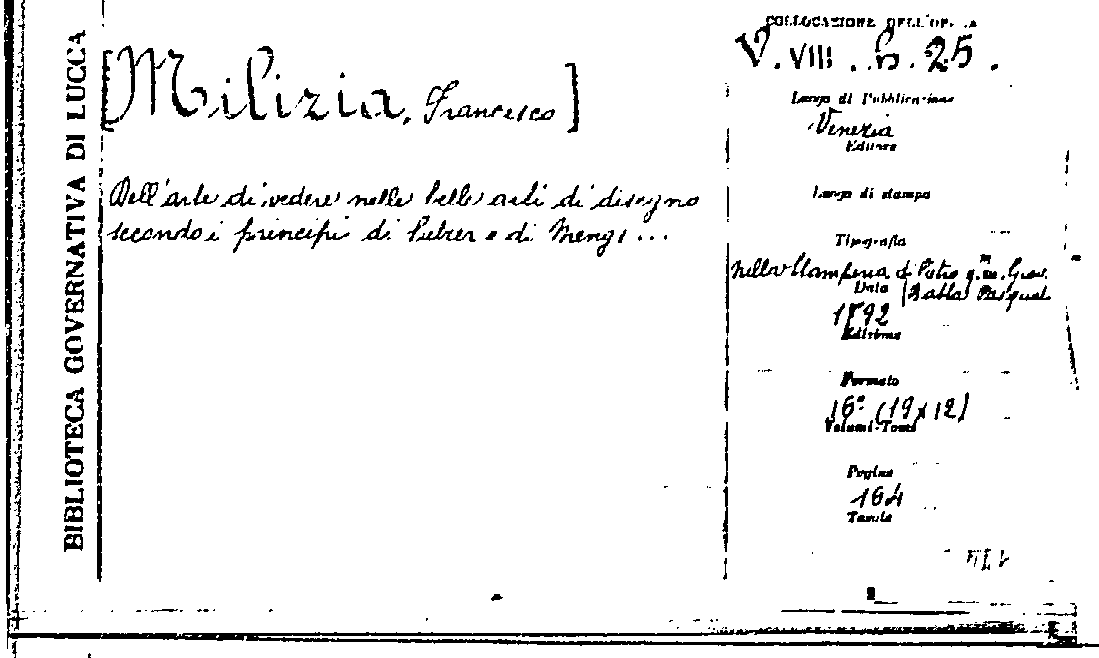 BIBLIOTECA GOVERNATIVA DI LUCCA
[Milizia, Francesco]
Dell'arte di vedere nelle belle arti di disegno
secondo i principi di Sulzer e di Mengs ...
COLLOCAZIONE DELL'OPERA
V. VIII. h. 25.
Luogo di Pubblicazione
Venezia
Editore
Luogo di stampa
Tipografia
nella Stamperia di Pietro q.m Giov.
Data
Batta Pasquali
1792
Edizione
Formato
16° (19x12)
Volumi-Tomi
Pagine
164
Tavole